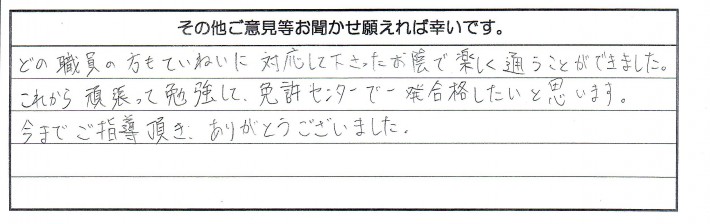 その他ご意見等お聞かせ願えれば幸いです。
どの職員の方もていねいに対応して下さったお陰で楽しく通うことができました。
これから頑張って勉強して、免許センターで一発合格したいと思います。
今までご指導頂き、ありがとうございました。